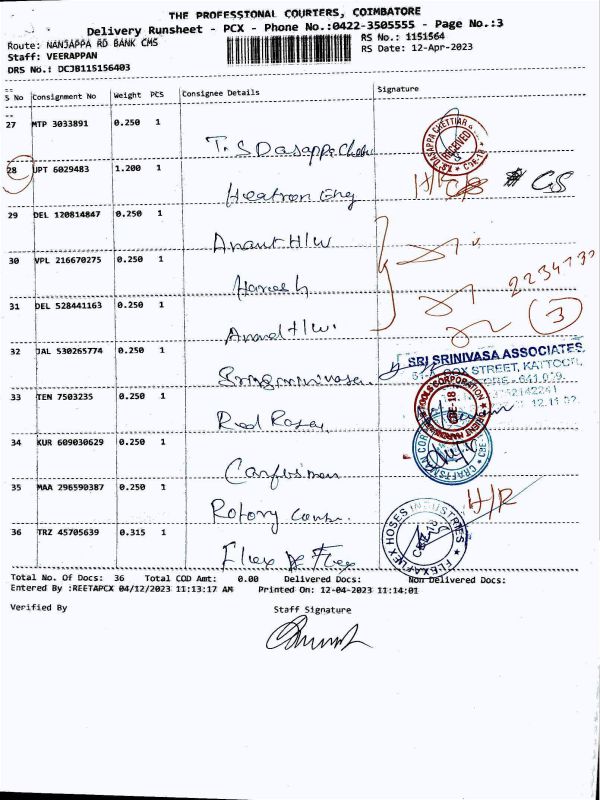 THE PROFESSIONAL COURIERS, COIMBATORE
Delivery Runsheet - PCX - Phone No.:0422-3505555 - Page No.:3
Route: NANJAPPA RD BANK CMS RS No.: 1151564
Staff: VEERAPPAN RS Date: 12-Apr-2023
DRS No.: DCJB115156403
S No Consignment No Weight PCS Consignee Details Signature
27 MTP 3033891 0.250 1
T.S Dasappa Chettiar
T.S DASAPPA CHETTIAR RECEIVED CBE-18
28 UPT 6029483 1.200 1
Heatron Eng
H/R CS
29 DEL 120814847 0.250 1
Anand H/W
30 VPL 216670275 0.250 1
Haresh
31 DEL 528441163 0.250 1
Anand H/W.
3
32 JAL 530265774 0.250 1
SRI SRINIVASA ASSOCIATES,
COX STREET, KATTOOR,
33 TEN 7503235 0.250 1
Red Rose
TOOLS CORPORATION CBE-18
34 KUR 609030629 0.250 1
CRAFTSMAN
35 MAA 296590387 0.250 1
Rotory
H/R
36 TRZ 45705639 0.315 1
Flex A Flex
FLEXAFLEX HOSES INDUSTRIES CBE-18
Total No. Of Docs: 36 Total COD Amt: 0.00 Delivered Docs: Non Delivered Docs:
Entered By :REETAPCX 04/12/2023 11:13:17 AM Printed On: 12-04-2023 11:14:01
Verified By Staff Signature